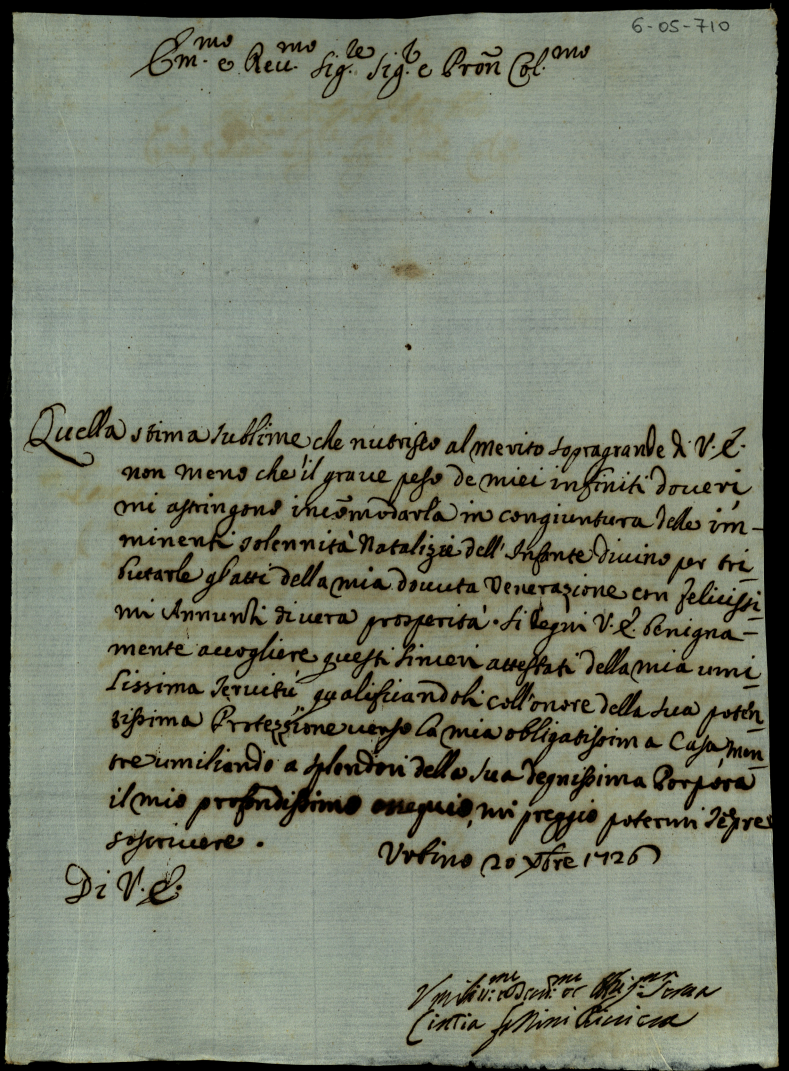 6-05-710
Em.mo e Reu.mo Sig.re Sig.r e Pron Col.mo
Quella stima sublime che nutrisco al merito sopragrande di V. E.
non meno che il graue peso de miei infiniti doueri
mi astringono incomodarla in congiuntura delle im-
minenti solennità Natalizie dell'Infante divino per tri
butarle gl'atti della mia douuta Venerazione con felicissi-
mi Annunti di uera prosperità. Si degni V. E. benigna-
mente accogliere questi sinceri attestati della mia umi
lissima seruitù qualificandoli coll'onore della sua poten
tissima Protezzione uerso la mia obligatissima Casa men
tre umiliando a splendori della sua degnissima Porpora
il mio profondissimo ossequio, mi preggio potermi sepre
soscriuere.
Urbino 20 Xbre 1726
Di V. E.
Vmiliss.me Deuot.me et Obligat.me Serua
Cintia